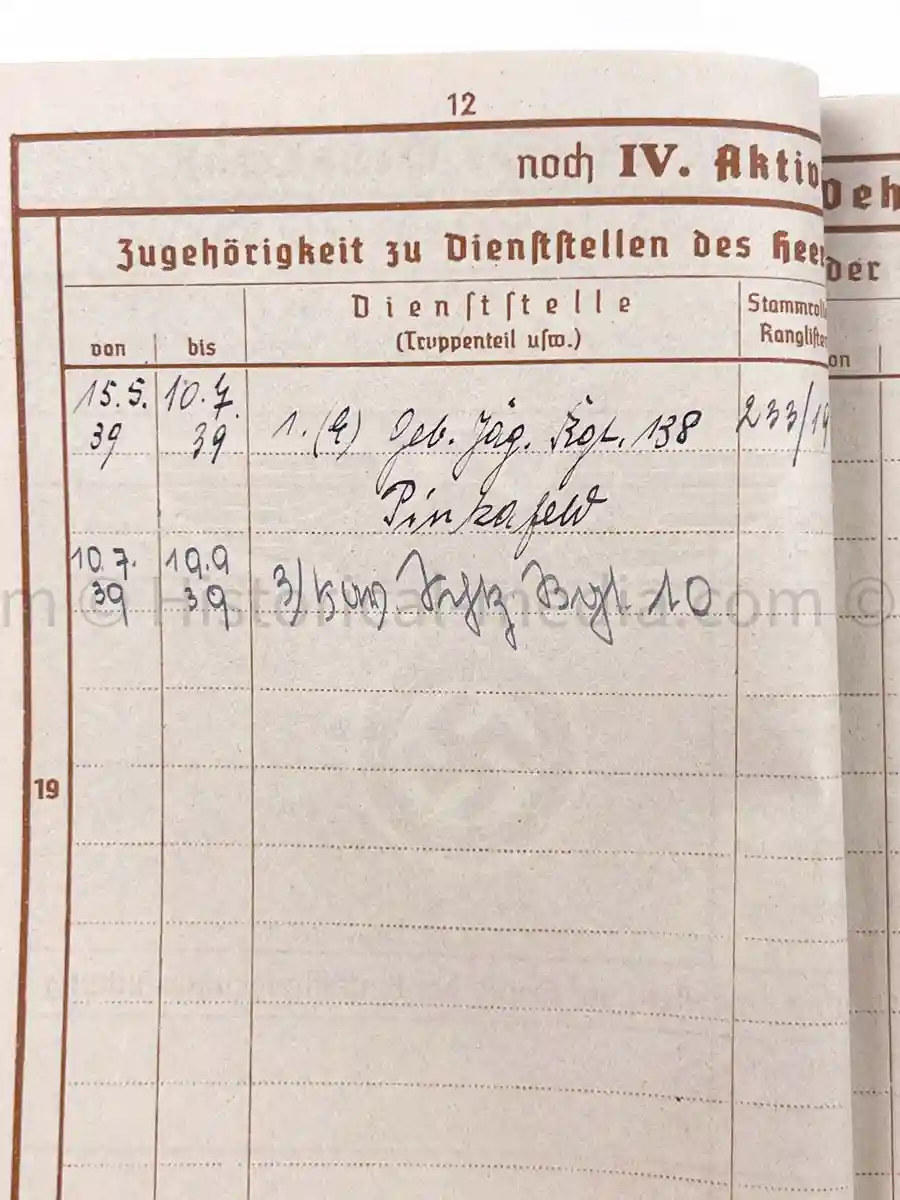 12
noch IV. Aktiv
Zugehörigkeit zu Dienststellen des Heer
von
bis
Dienststelle
(Truppenteil usw.)
Stammroll
Ranglisten
15.5.
39
10.7.
39
1. (E) Geb. Jäg. Rgt. 138
Pinkafeld
233/19
10.7.
39
19.9
39
3/
10
19
m © Historical-media.com ©
Weh
der
on